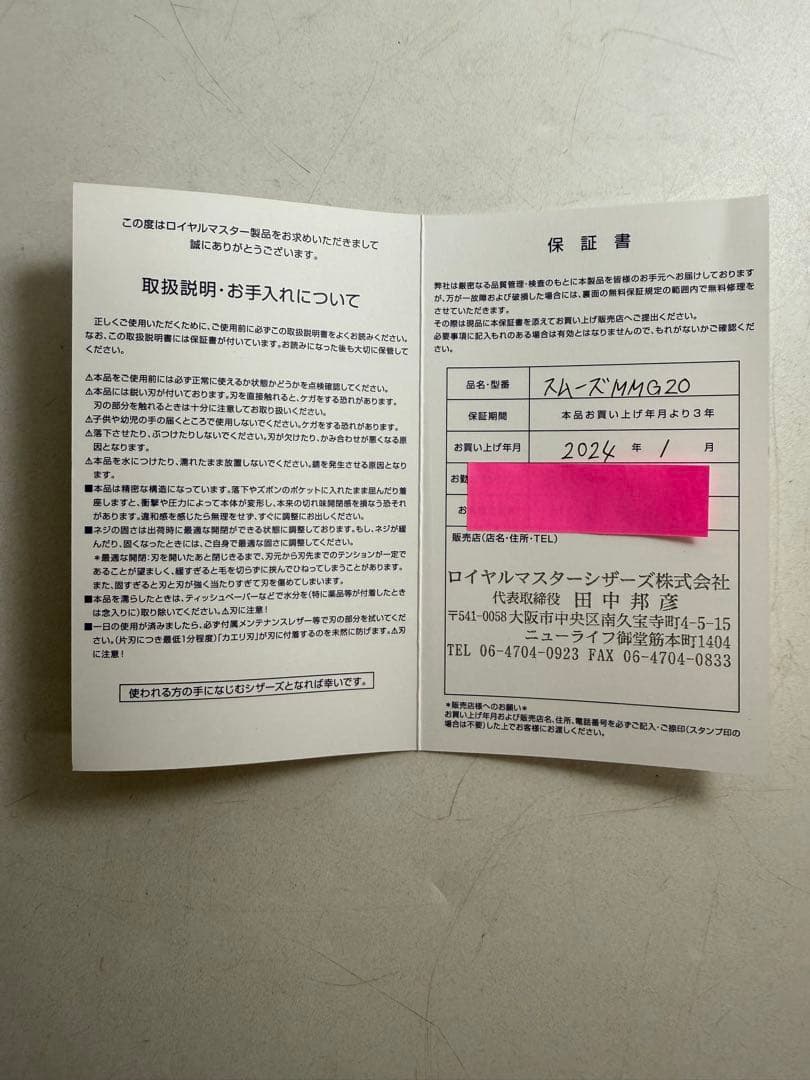 この度はロイヤルマスター製品をお求めいただきまして
誠にありがとうございます。
取扱説明・お手入れについて
正しくご使用いただくために、ご使用前に必ずこの取扱説明書をよくお読みください。
なお、この取扱説明書には保証書が付いています。お読みになった後も大切に保管して
ください。
⚠本品をご使用前には必ず正常に使えるか状態かどうかを点検確認してください。
⚠本品には鋭い刃が付いております。刃を直接触れると、ケガをする恐れがあります。
刃の部分を触れるときは十分に注意してお取り扱いください。
⚠子供や幼児の手の届くところで使用しないでください。ケガをする恐れがあります。
⚠落下させたり、ぶつけたりしないでください。刃が欠けたり、かみ合わせが悪くなる原
因となります。
⚠本品を水につけたり、濡れたまま放置しないでください。錆を発生させる原因となりま
す。
■本品は精密な構造になっています。落下やズボンのポケットに入れたまま屈んだり着
座しますと、衝撃や圧力によって本体が変形し、本来の切れ味開閉感を損なう恐れそ
れがあります。違和感を感じたら無理をせず、すぐに調整にお出しください。
■ネジの固さは出荷時に最適な開閉ができる状態に調整しております。もし、ネジが緩
んだり、固くなったときには、ご自身で最適な固さに調整してください。
*最適な開閉:刃を開いたあと閉じきるまで、刃元から刃先までのテンションが一定で
あることが望ましく、緩すぎると毛を切らずに挟んでひねってしまうことがあります。
また、固すぎると刃と刃が強く当たりすぎて刃を傷めてしまいます。
■本品を濡らしたときは、ティッシュペーパーなどで水分を(特に薬品等が付着したとき
は念入りに)取り除いてください。⚠刃に注意!
■一日の使用が済みましたら、必ず付属メンテナンスレザー等で刃の部分を拭いてくだ
さい。(片刃につき最低1分程度)「カエリ刃」が刃に付着するのを未然に防げます。⚠刃
に注意!
使われる方の手になじむシザーズとなれば幸いです。
保証書
弊社は厳密なる品質管理・検査のもとに本製品を皆様のお手元へお届けしております
が、万が一故障および破損した場合には、裏面の無料保証規定の範囲内で無料修理を
させていただきます。
その際は現品に本保証書を添えてお買い上げ販売店へご提出ください。
必要事項に記入もれのある場合は有効とはなりませんので、もれがないかご確認くだ
さい。
品名・型番 スムーズMMG20
保証期間 本品お買い上げ年月より3年
お買い上げ年月 2024 年 1 月
お勤
お
販売店(店名・住所・TEL)
ロイヤルマスターシザーズ株式会社
代表取締役 田中邦彦
〒541-0058大阪市中央区南久宝寺町4-5-15
ニューライフ御堂筋本町1404
TEL 06-4704-0923 FAX 06-4704-0833
*販売店様へのお願い*
お買い上げ年月および販売店名、住所、電話番号を必ずご記入・ご捺印(スタンプ印の
場合は不要)した上でお客様にお渡しください。